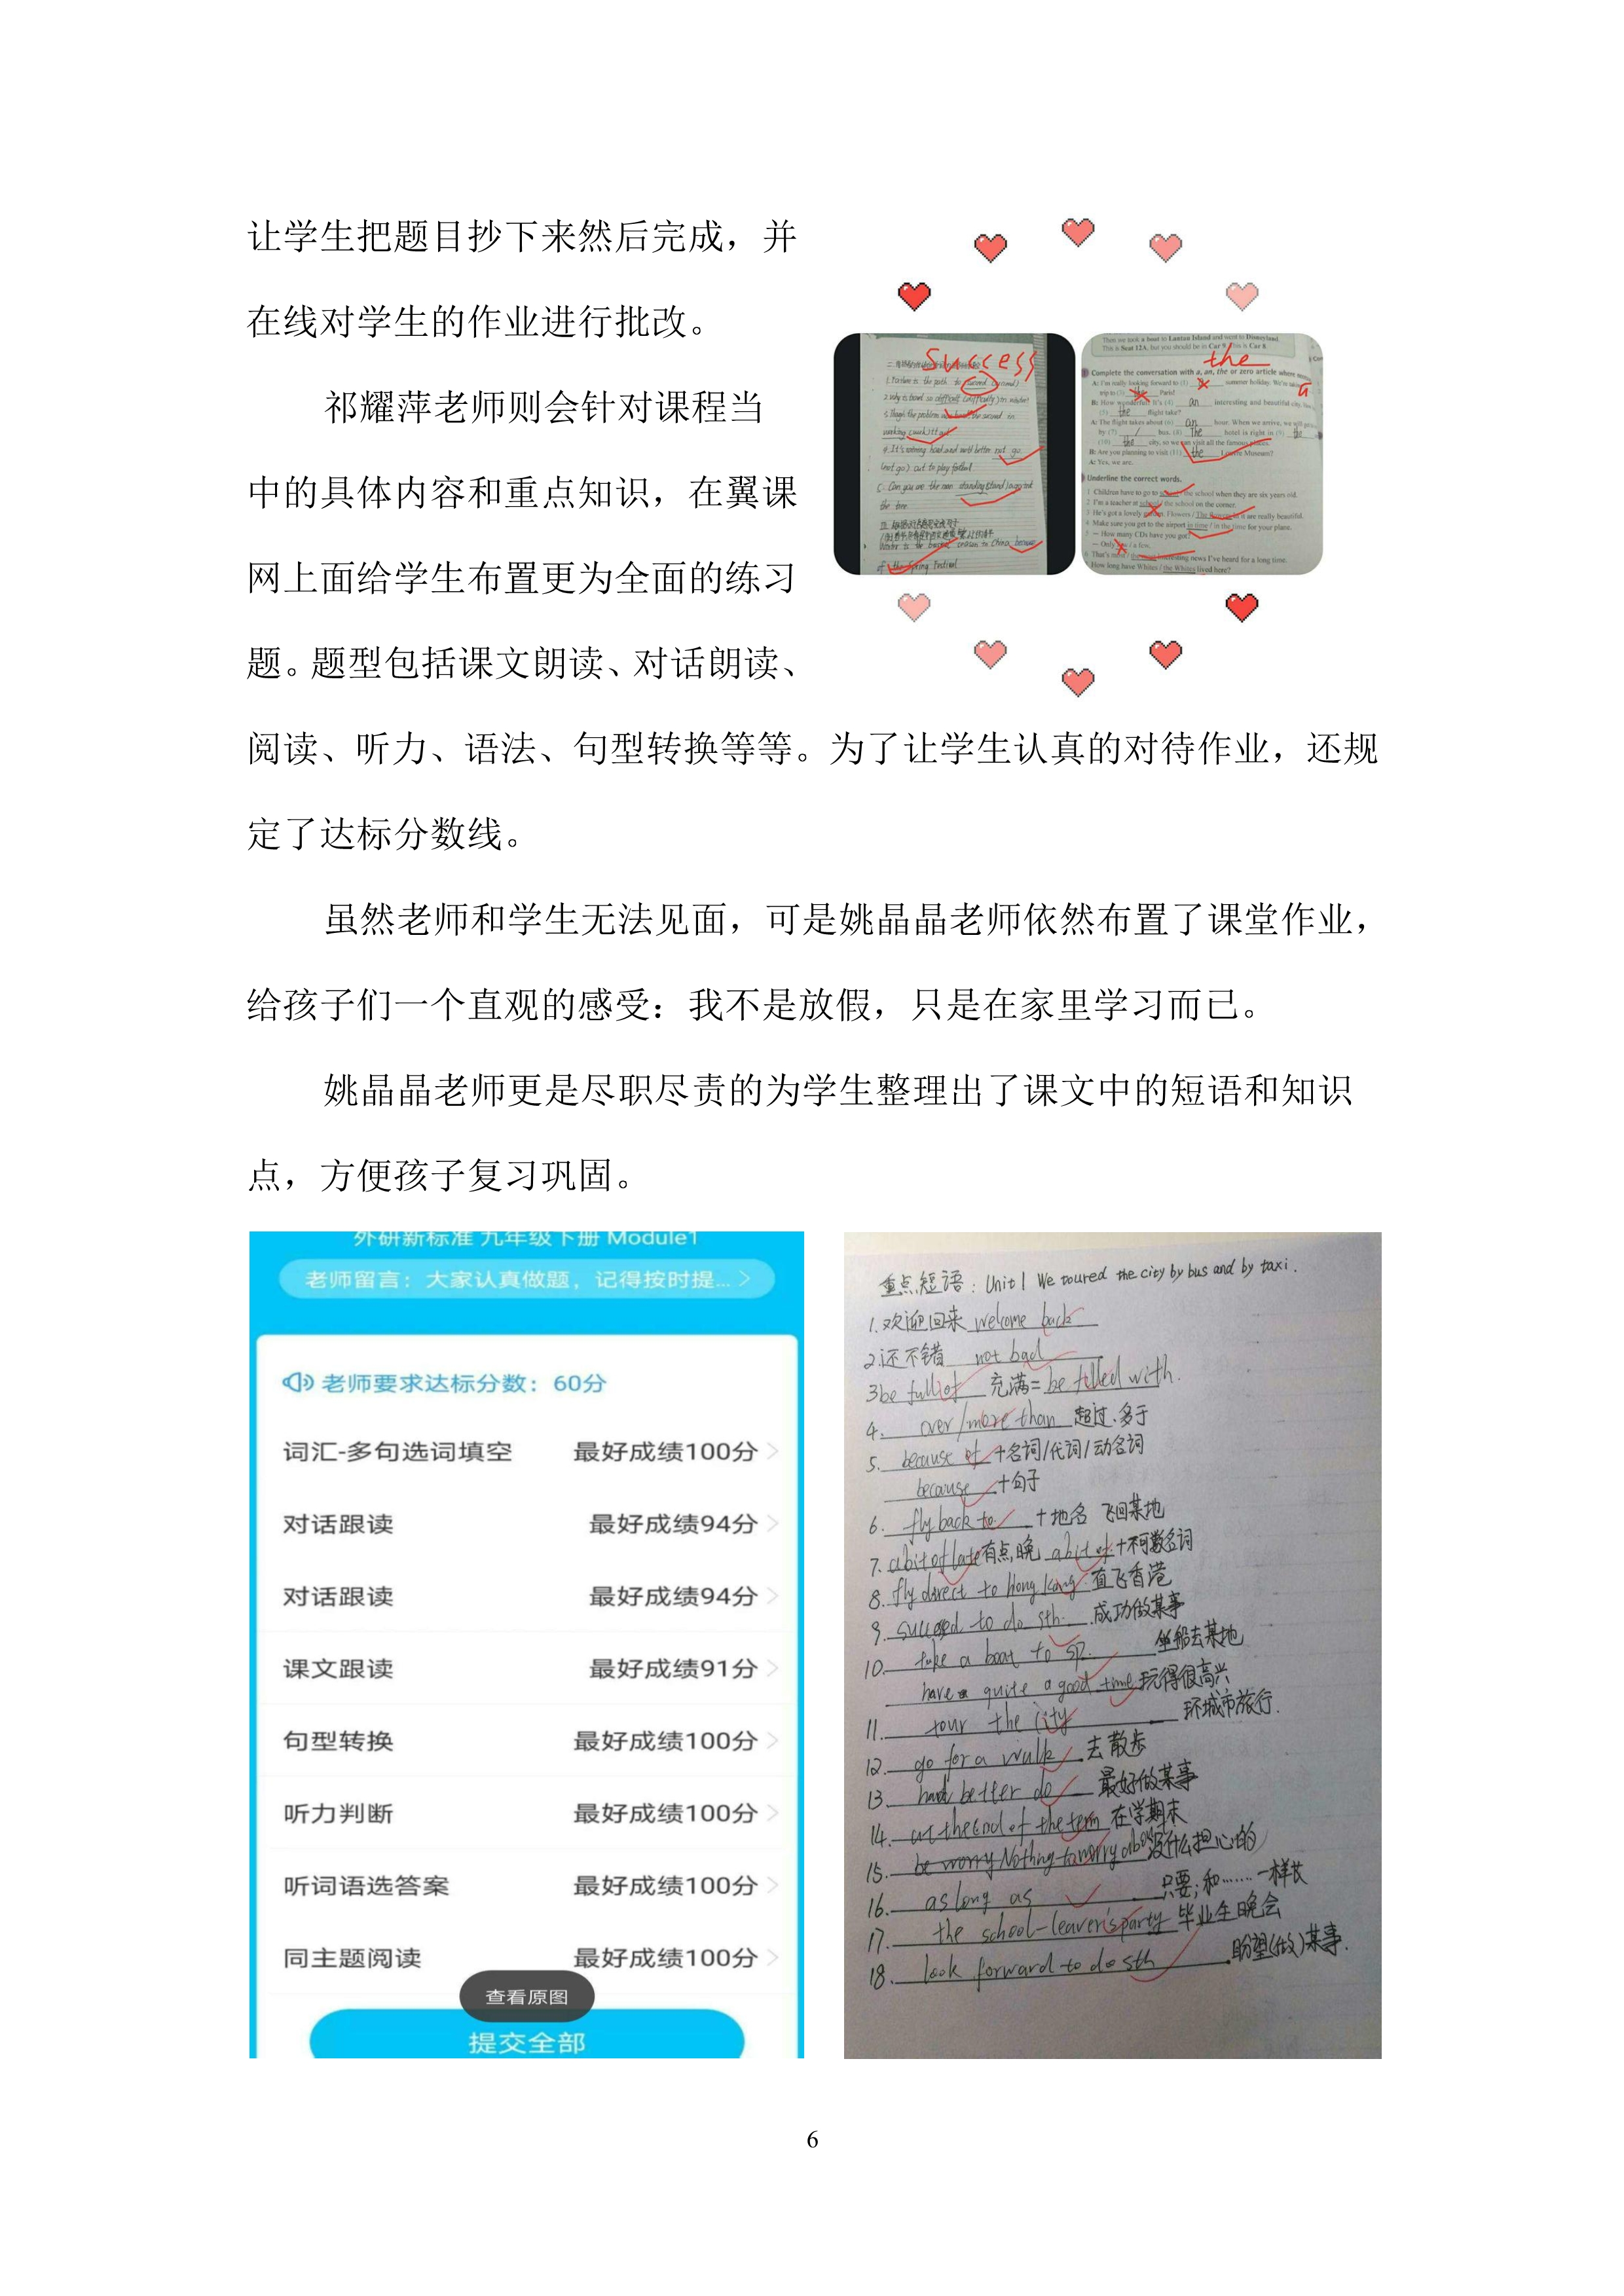 让学生把题目抄下来然后完成，并
在线对学生的作业进行批改。
祁耀萍老师则会针对课程当
中的具体内容和重点知识，在翼课
网上面给学生布置更为全面的练习
题。题型包括课文朗读、对话朗读、
阅读、听力、语法、句型转换等等。为了让学生认真的对待作业，还规
定了达标分数线。
success
the
Complete the conversation with a, an, the or zero article where
Underline the correct words.
虽然老师和学生无法见面，可是姚晶晶老师依然布置了课堂作业，
给孩子们一个直观的感受：我不是放假，只是在家里学习而已。
姚晶晶老师更是尽职尽责的为学生整理出了课文中的短语和知识
点，方便孩子复习巩固。
外研新标准 九年级下册 Module1
老师留言：大家认真做题，记得按时提... >
老师要求达标分数：60分
词汇-多句选词填空 最好成绩100分 >
对话跟读 最好成绩94分 >
对话跟读 最好成绩94分 >
课文跟读 最好成绩91分 >
句型转换 最好成绩100分 >
听力判断 最好成绩100分 >
听词语选答案 最好成绩100分 >
同主题阅读 最好成绩100分 >
查看原图
提交全部
重点短语：Unit1 We toured the city by bus and by taxi.
1.欢迎回来 welcome back
2.还不错 not bad
3 be full of 充满= be filled with.
4. over/more than 超过.多于
5. because of +名词/代词/动名词
because +句子
6. fly back to +地名 飞回某地
7. a bit of late 有点晚 a bit of +不可数名词
8. fly direct to Hong Kong 直飞香港
9. succeed to do sth. 成功做某事
10. take a boat to sp. 坐船去某地
have quite a good time 玩得很高兴
11. tour the city 环城市旅行.
12. go for a walk 去散步
13. had better do 最好做某事
14. at the end of the term 在学期末
15. Nothing to worry about 没什么担心的
16. as long as 只要;和……一样长
17. the school-leaver's party 毕业生晚会
18. look forward to do sth 盼望(做)某事.
6